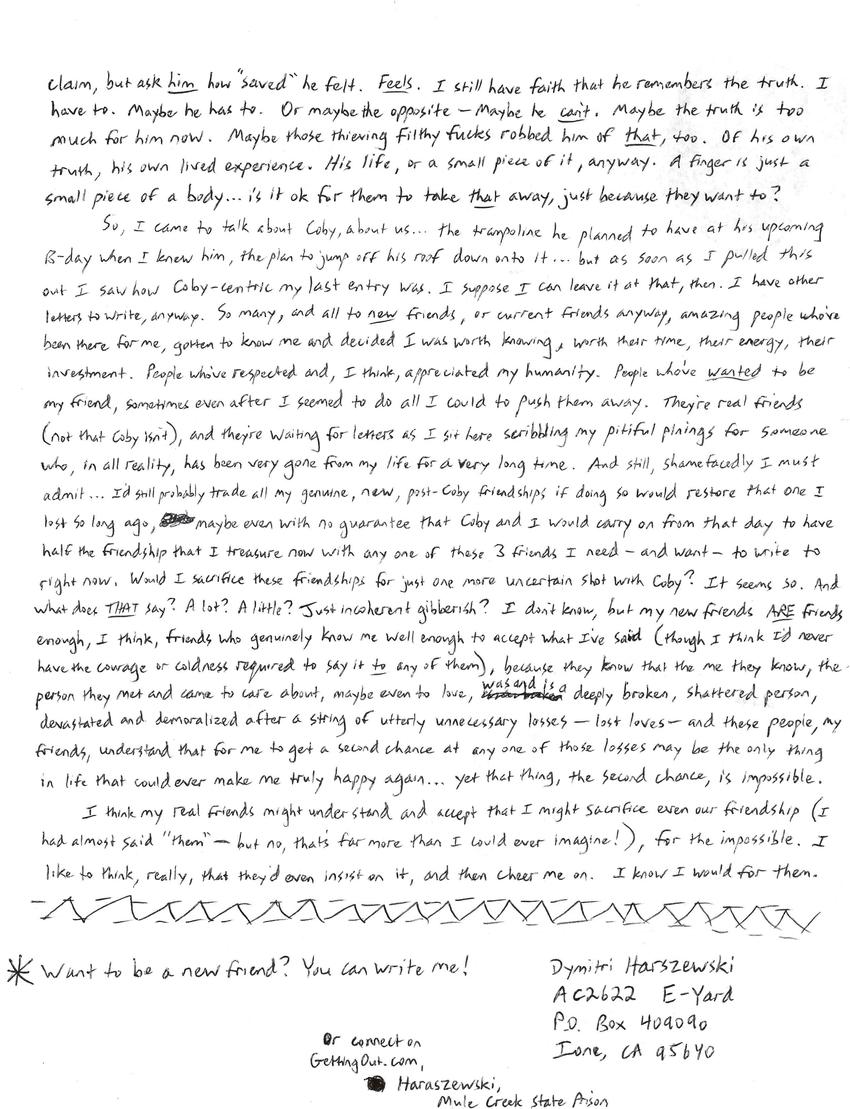 claim, but ask him how "saved" he felt. Feels. I still have faith that he remembers the truth. I
have to. Maybe he has to. Or maybe the opposite – Maybe he can't. Maybe the truth is too
much for him now. Maybe those thieving filthy fucks robbed him of that, too. Of his own
truth, his own lived experience. His life, or a small piece of it, anyway. A finger is just a
small piece of a body... is it ok for them to take that away, just because they want to?
So, I came to talk about Coby, about us... the trampoline he planned to have at his upcoming
B-day when I knew him, the plan to jump off his roof down onto it... but as soon as I pulled this
out I saw how Coby-centric my last entry was. I suppose I can leave it at that, then. I have other
letters to write, anyway. So many, and all to new friends, or current friends anyway, amazing people who've
been there for me, gotten to know me and decided I was worth knowing, worth their time, their energy, their
investment. People who've respected and, I think, appreciated my humanity. People who've wanted to be
my friend, sometimes even after I seemed to do all I could to push them away. They're real friends
(not that Coby isn't), and they're waiting for letters as I sit here scribbling my pitiful pinings for someone
who, in all reality, has been very gone from my life for a very long time. And still, shamefacedly I must
admit... I'd still probably trade all my genuine, new, post-Coby friendships if doing so would restore that one I
lost so long ago, maybe even with no guarantee that Coby and I would carry on from that day to have
half the friendship that I treasure now with any one of these 3 friends I need – and want – to write to
right now. Would I sacrifice these friendships for just one more uncertain shot with Coby? It seems so. And
what does THAT say? A lot? A little? Just incoherent gibberish? I don't know, but my new friends ARE friends
enough, I think, friends who genuinely know me well enough to accept what I've said (though I think I'd never
have the courage or coldness required to say it to any of them), because they know that the me they know, the
person they met and came to care about, maybe even to love, was and is a deeply broken, shattered person,
devastated and demoralized after a string of utterly unnecessary losses – lost loves – and these people, my
friends, understand that for me to get a second chance at any one of those losses may be the only thing
in life that could ever make me truly happy again... yet that thing, the second chance, is impossible.
I think my real friends might understand and accept that I might sacrifice even our friendship (I
had almost said "them" – but no, that's far more than I could ever imagine!), for the impossible. I
like to think, really, that they'd even insist on it, and then cheer me on. I know I would for them.
* Want to be a new friend? You can write me!
Dymitri Harszewski
AC2622 E-Yard
P.O. Box 409090
Ione, CA 95640
Or connect on
GettingOut.com,
Haraszewski,
Mule Creek State Prison